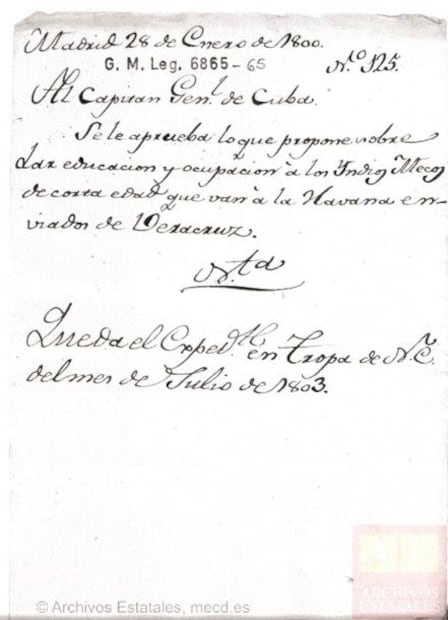 Madrid 28 de Enero de 1800.
G. M. Leg. 6865-65
N.º 125.
Al Capitan Gen.l de Cuba.
Se le aprueba lo que propone sobre
dar educacion y ocupacion à los Yndios Mecos
de corta edad que van à la Havana en-
viados de Veracruz.
N.ta
Queda el Exped.te en Tropa de N.E.
del mes de Julio de 1803.
ARCHIVOS
ESTATALES
© Archivos Estatales, mecd.es